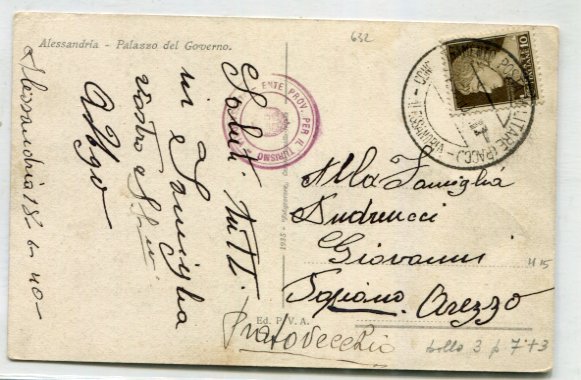 Alessandria - Palazzo del Governo.
632
Saluti Tutti
in Famiglia
vostro
Alessandria 18 6 40
ENTE PROV. PER IL TURISMO
10
POSTA MILITARE
Alla Famiglia
Andreucci
Giovanni
Papiano. Arezzo
Pratovecchio
Ed. P. V. A.
bollo 3 p 7+3